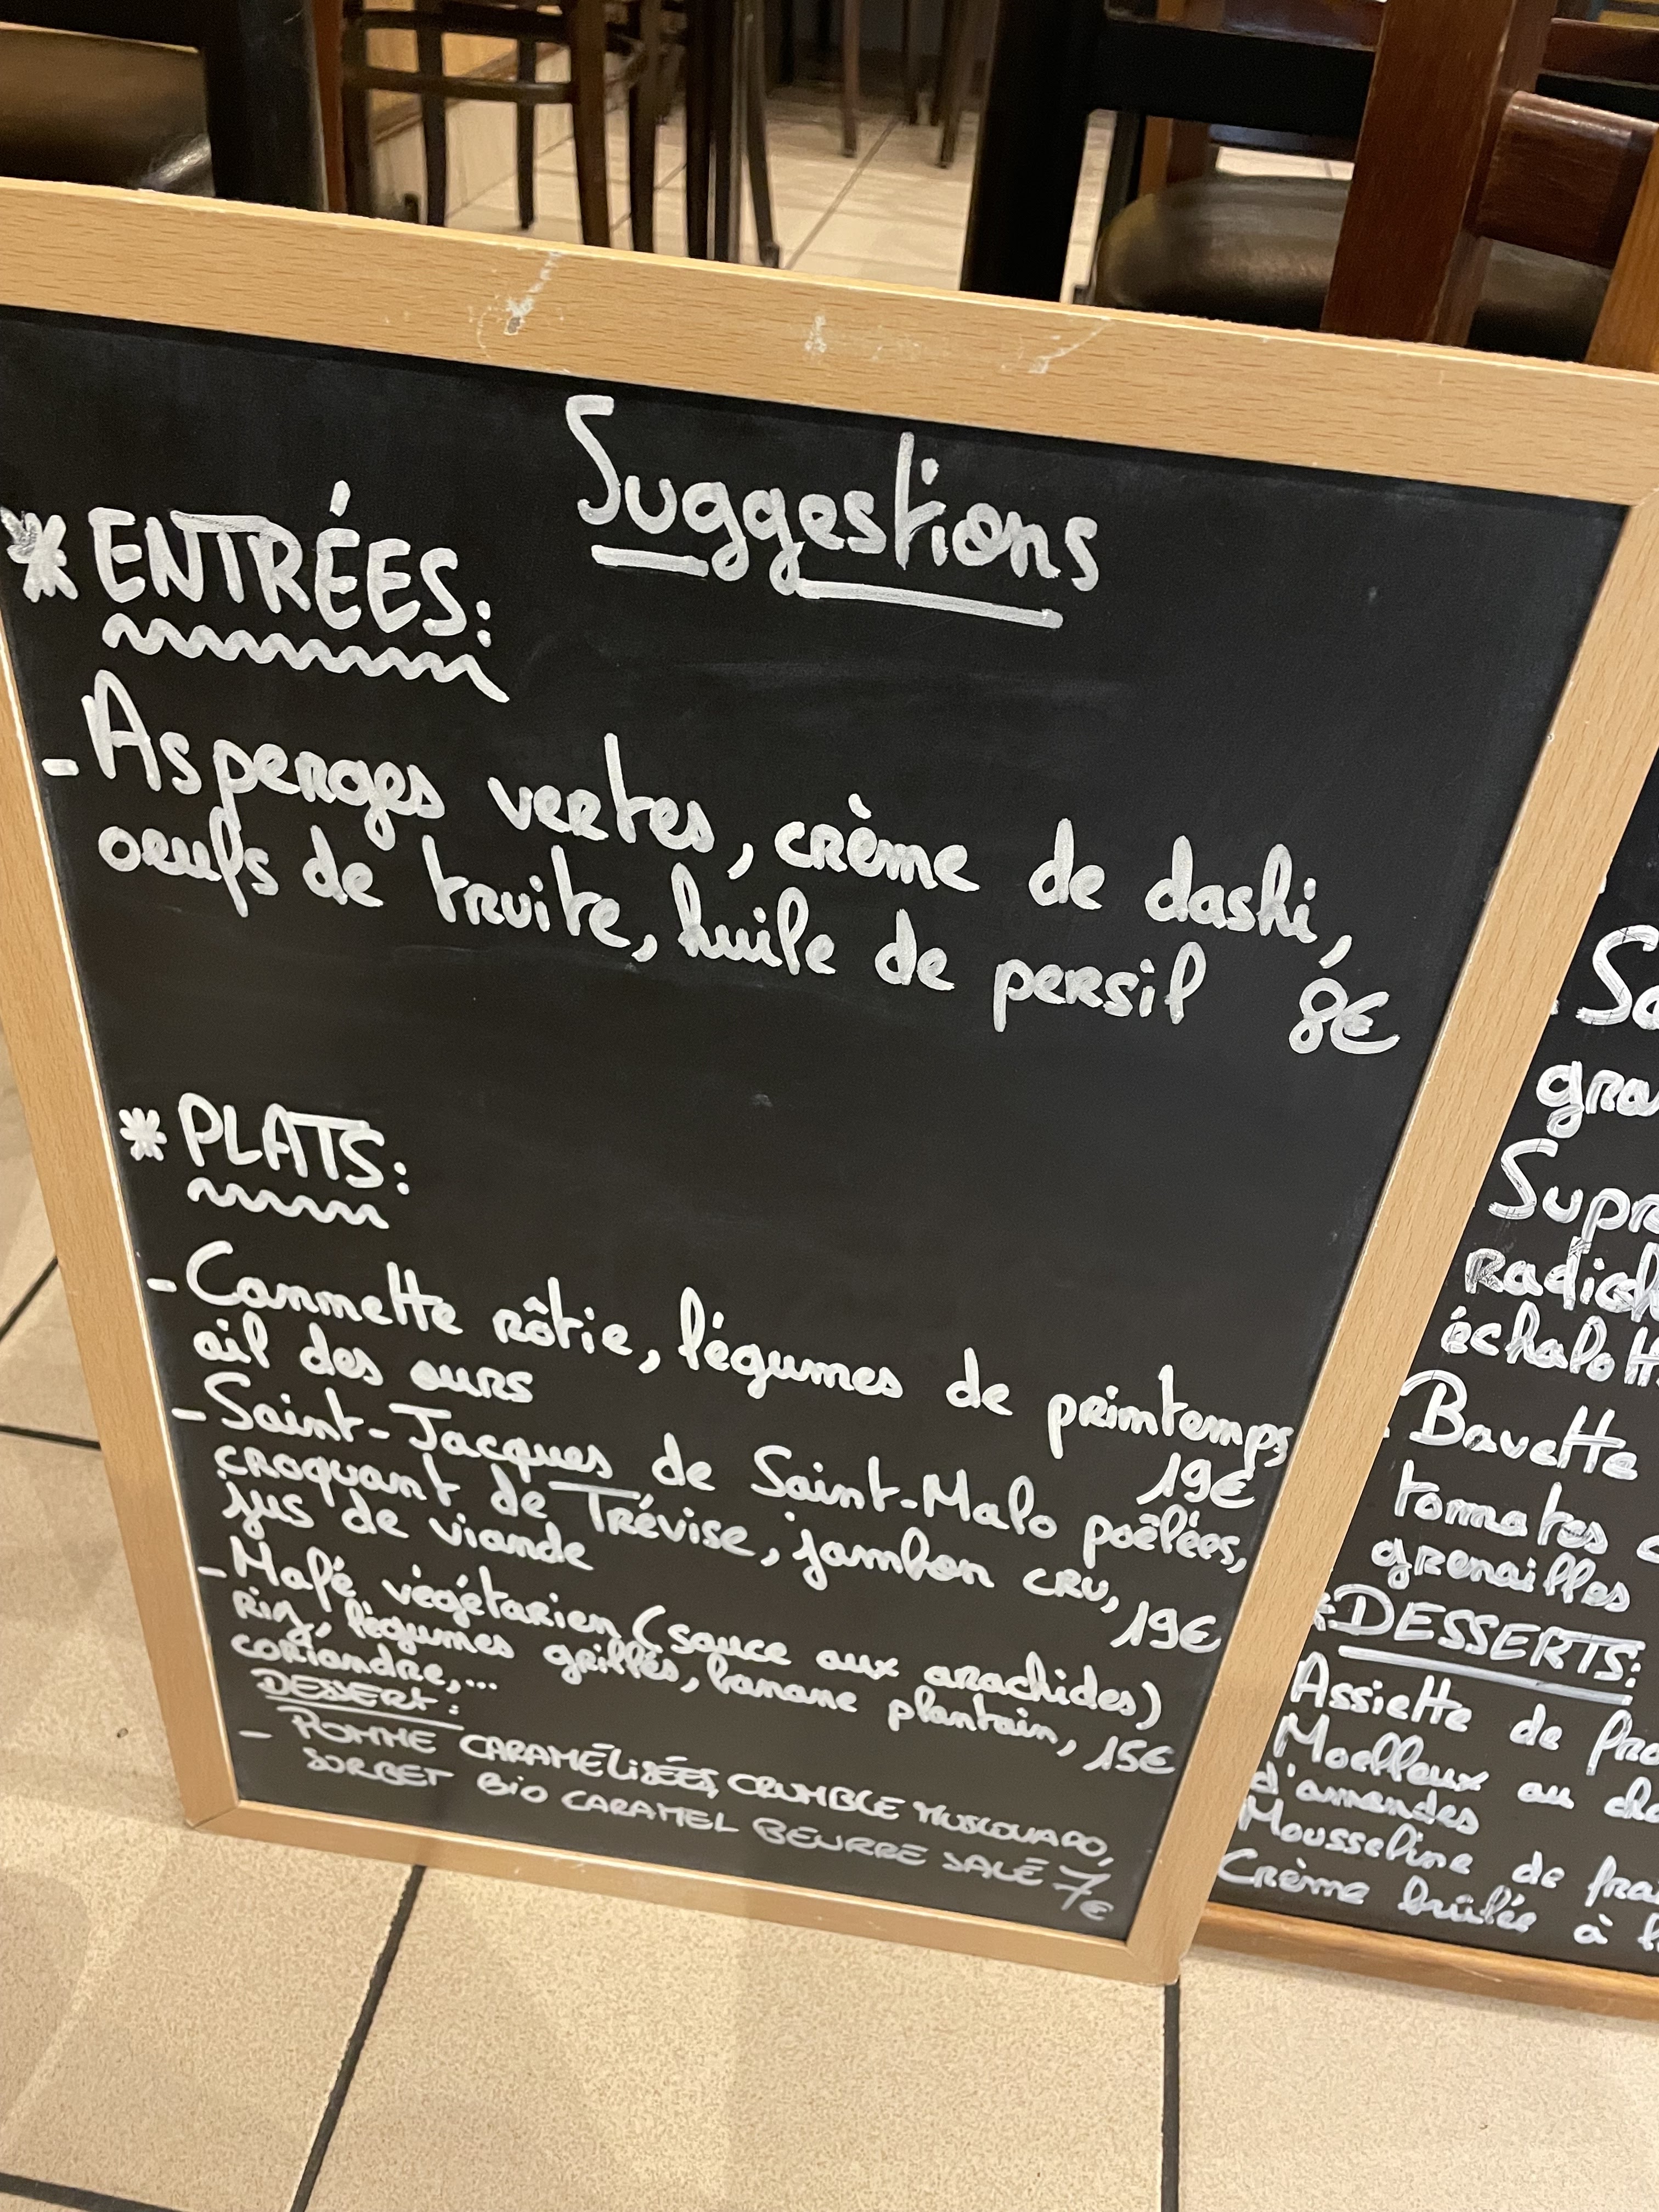 Suggestions
* ENTRÉES:
- Asperges vertes, crème de dashi,
oeufs de truite, huile de persil 8€
* PLATS:
- Cannette rôtie, légumes de printemps
ail des ours 19€
- Saint-Jacques de Saint-Malo poêlées,
croquant de Trévise, jambon cru,
jus de viande 19€
- Mafé végétarien (sauce aux arachides)
riz, légumes grillés, banane plantain,
coriandre,... 15€
DESSERT:
- POMME CARAMÉLISÉES, CRUMBLE MUSCOVADO,
SORBET BIO CARAMEL BEURRE SALÉ 7€
Bavette
tomates
grenailles
* DESSERTS:
Assiette de
Moelleux au
d'amandes
Mousseline de
Crème brûlée à